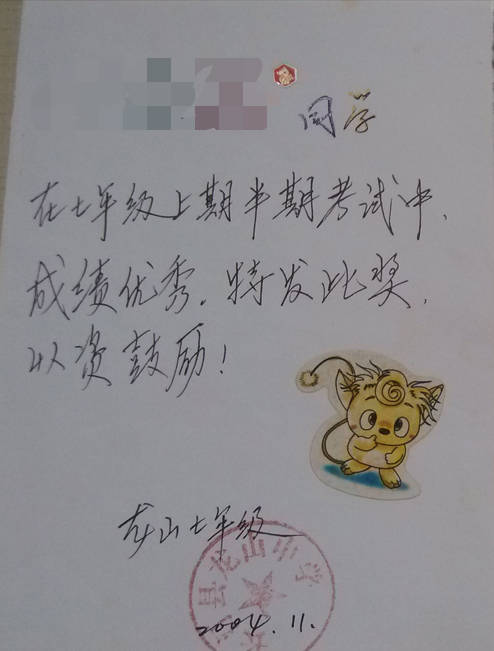 同学
在七年级上期半期考试中,
成绩优秀.特发此奖,
以资鼓励!
龙山七年级
县龙山中学
2004.11.